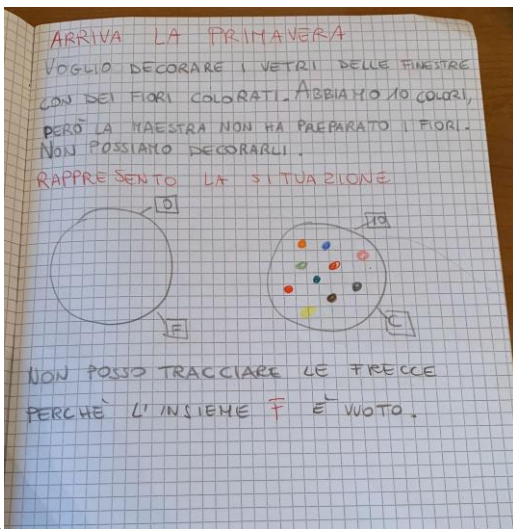 ARRIVA LA PRIMAVERA
VOGLIO DECORARE I VETRI DELLE FINESTRE
CON DEI FIORI COLORATI. ABBIAMO 10 COLORI,
PERÒ LA MAESTRA NON HA PREPARATO I FIORI.
NON POSSIAMO DECORARLI.
RAPPRESENTO LA SITUAZIONE
0 10
F C
NON POSSO TRACCIARE LE FRECCE
PERCHÈ L'INSIEME F È VUOTO.